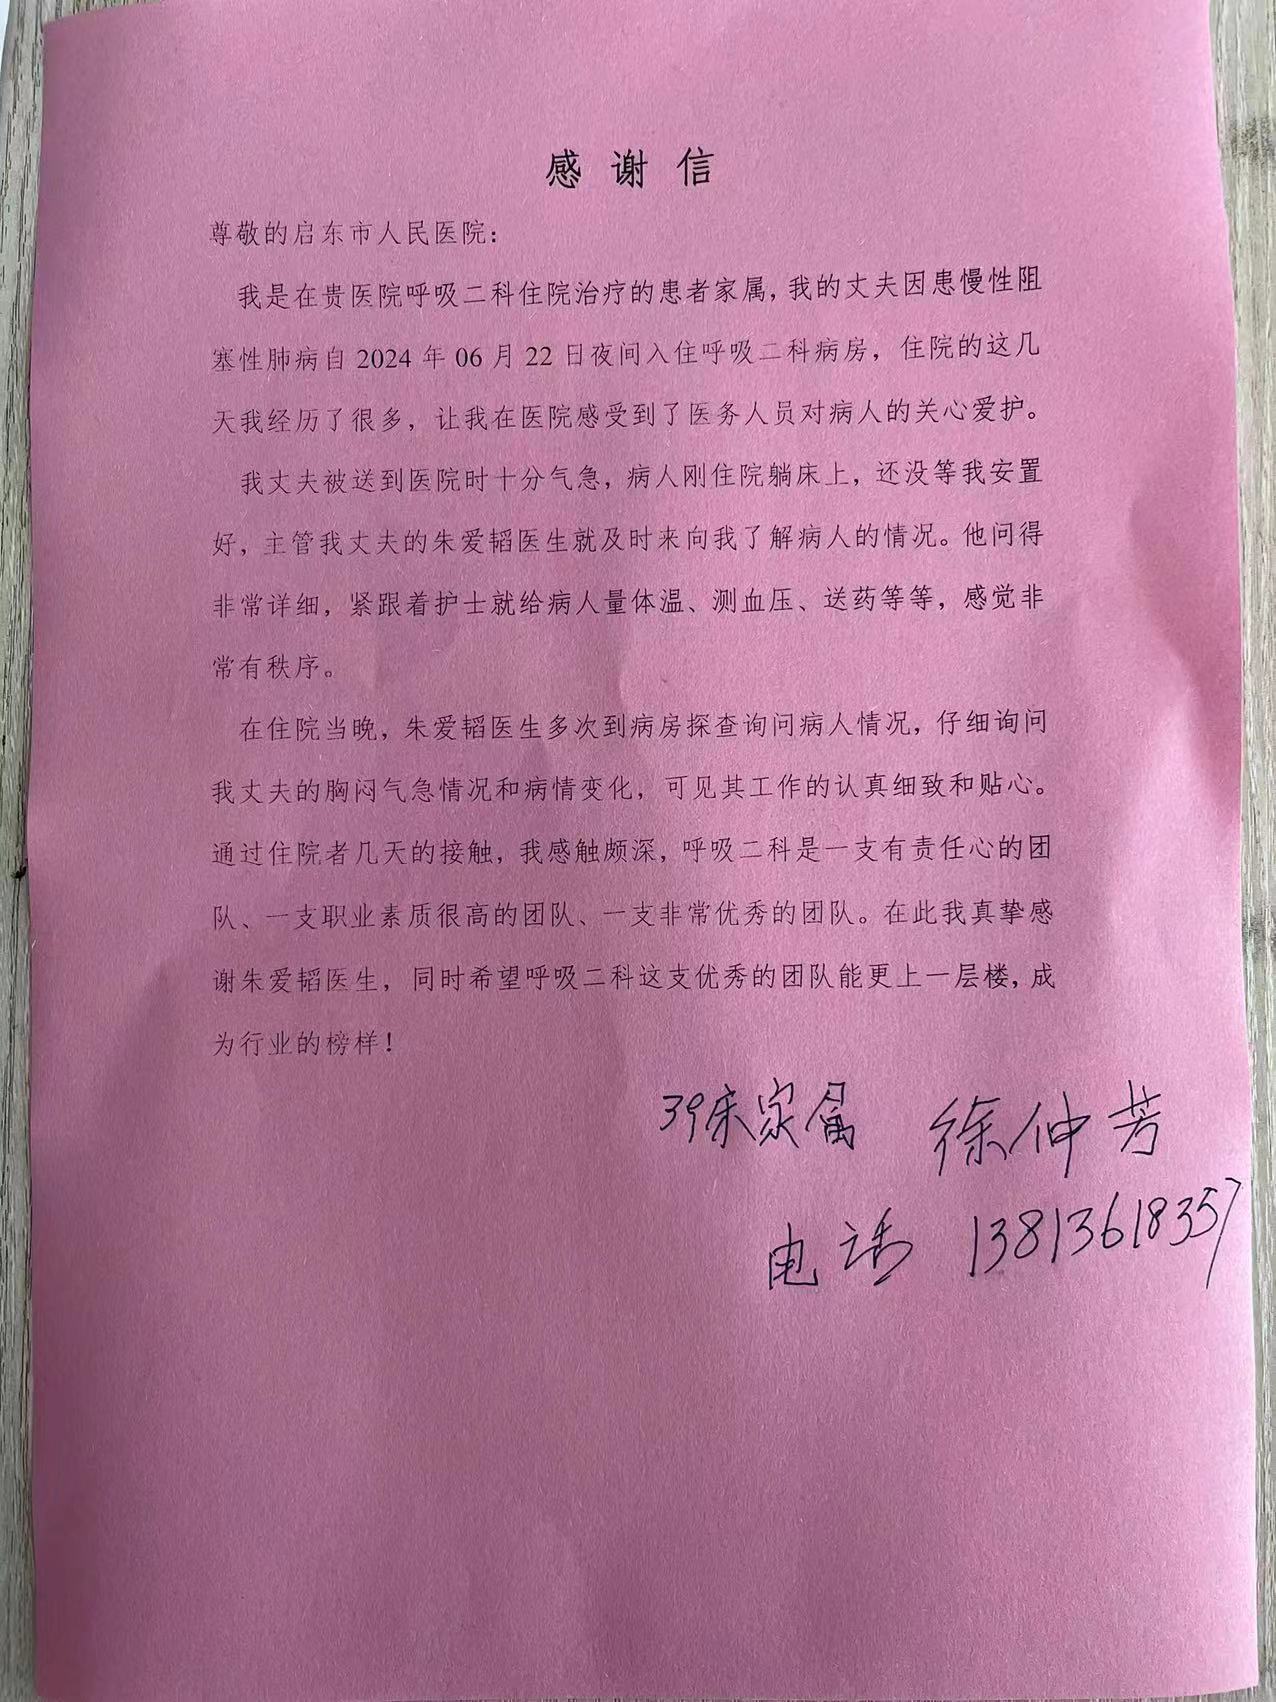 感谢信
尊敬的启东市人民医院：
我是在贵医院呼吸二科住院治疗的患者家属，我的丈夫因患慢性阻
塞性肺病自 2024 年 06 月 22 日夜间入住呼吸二科病房，住院的这几
天我经历了很多，让我在医院感受到了医务人员对病人的关心爱护。
我丈夫被送到医院时十分气急，病人刚住院躺床上，还没等我安置
好，主管我丈夫的朱爱韬医生就及时来向我了解病人的情况。他问得
非常详细，紧跟着护士就给病人量体温、测血压、送药等等，感觉非
常有秩序。
在住院当晚，朱爱韬医生多次到病房探查询问病人情况，仔细询问
我丈夫的胸闷气急情况和病情变化，可见其工作的认真细致和贴心。
通过住院者几天的接触，我感触颇深，呼吸二科是一支有责任心的团
队、一支职业素质很高的团队、一支非常优秀的团队。在此我真挚感
谢朱爱韬医生，同时希望呼吸二科这支优秀的团队能更上一层楼，成
为行业的榜样！
39床家属 徐仲芳
电话 13813618357